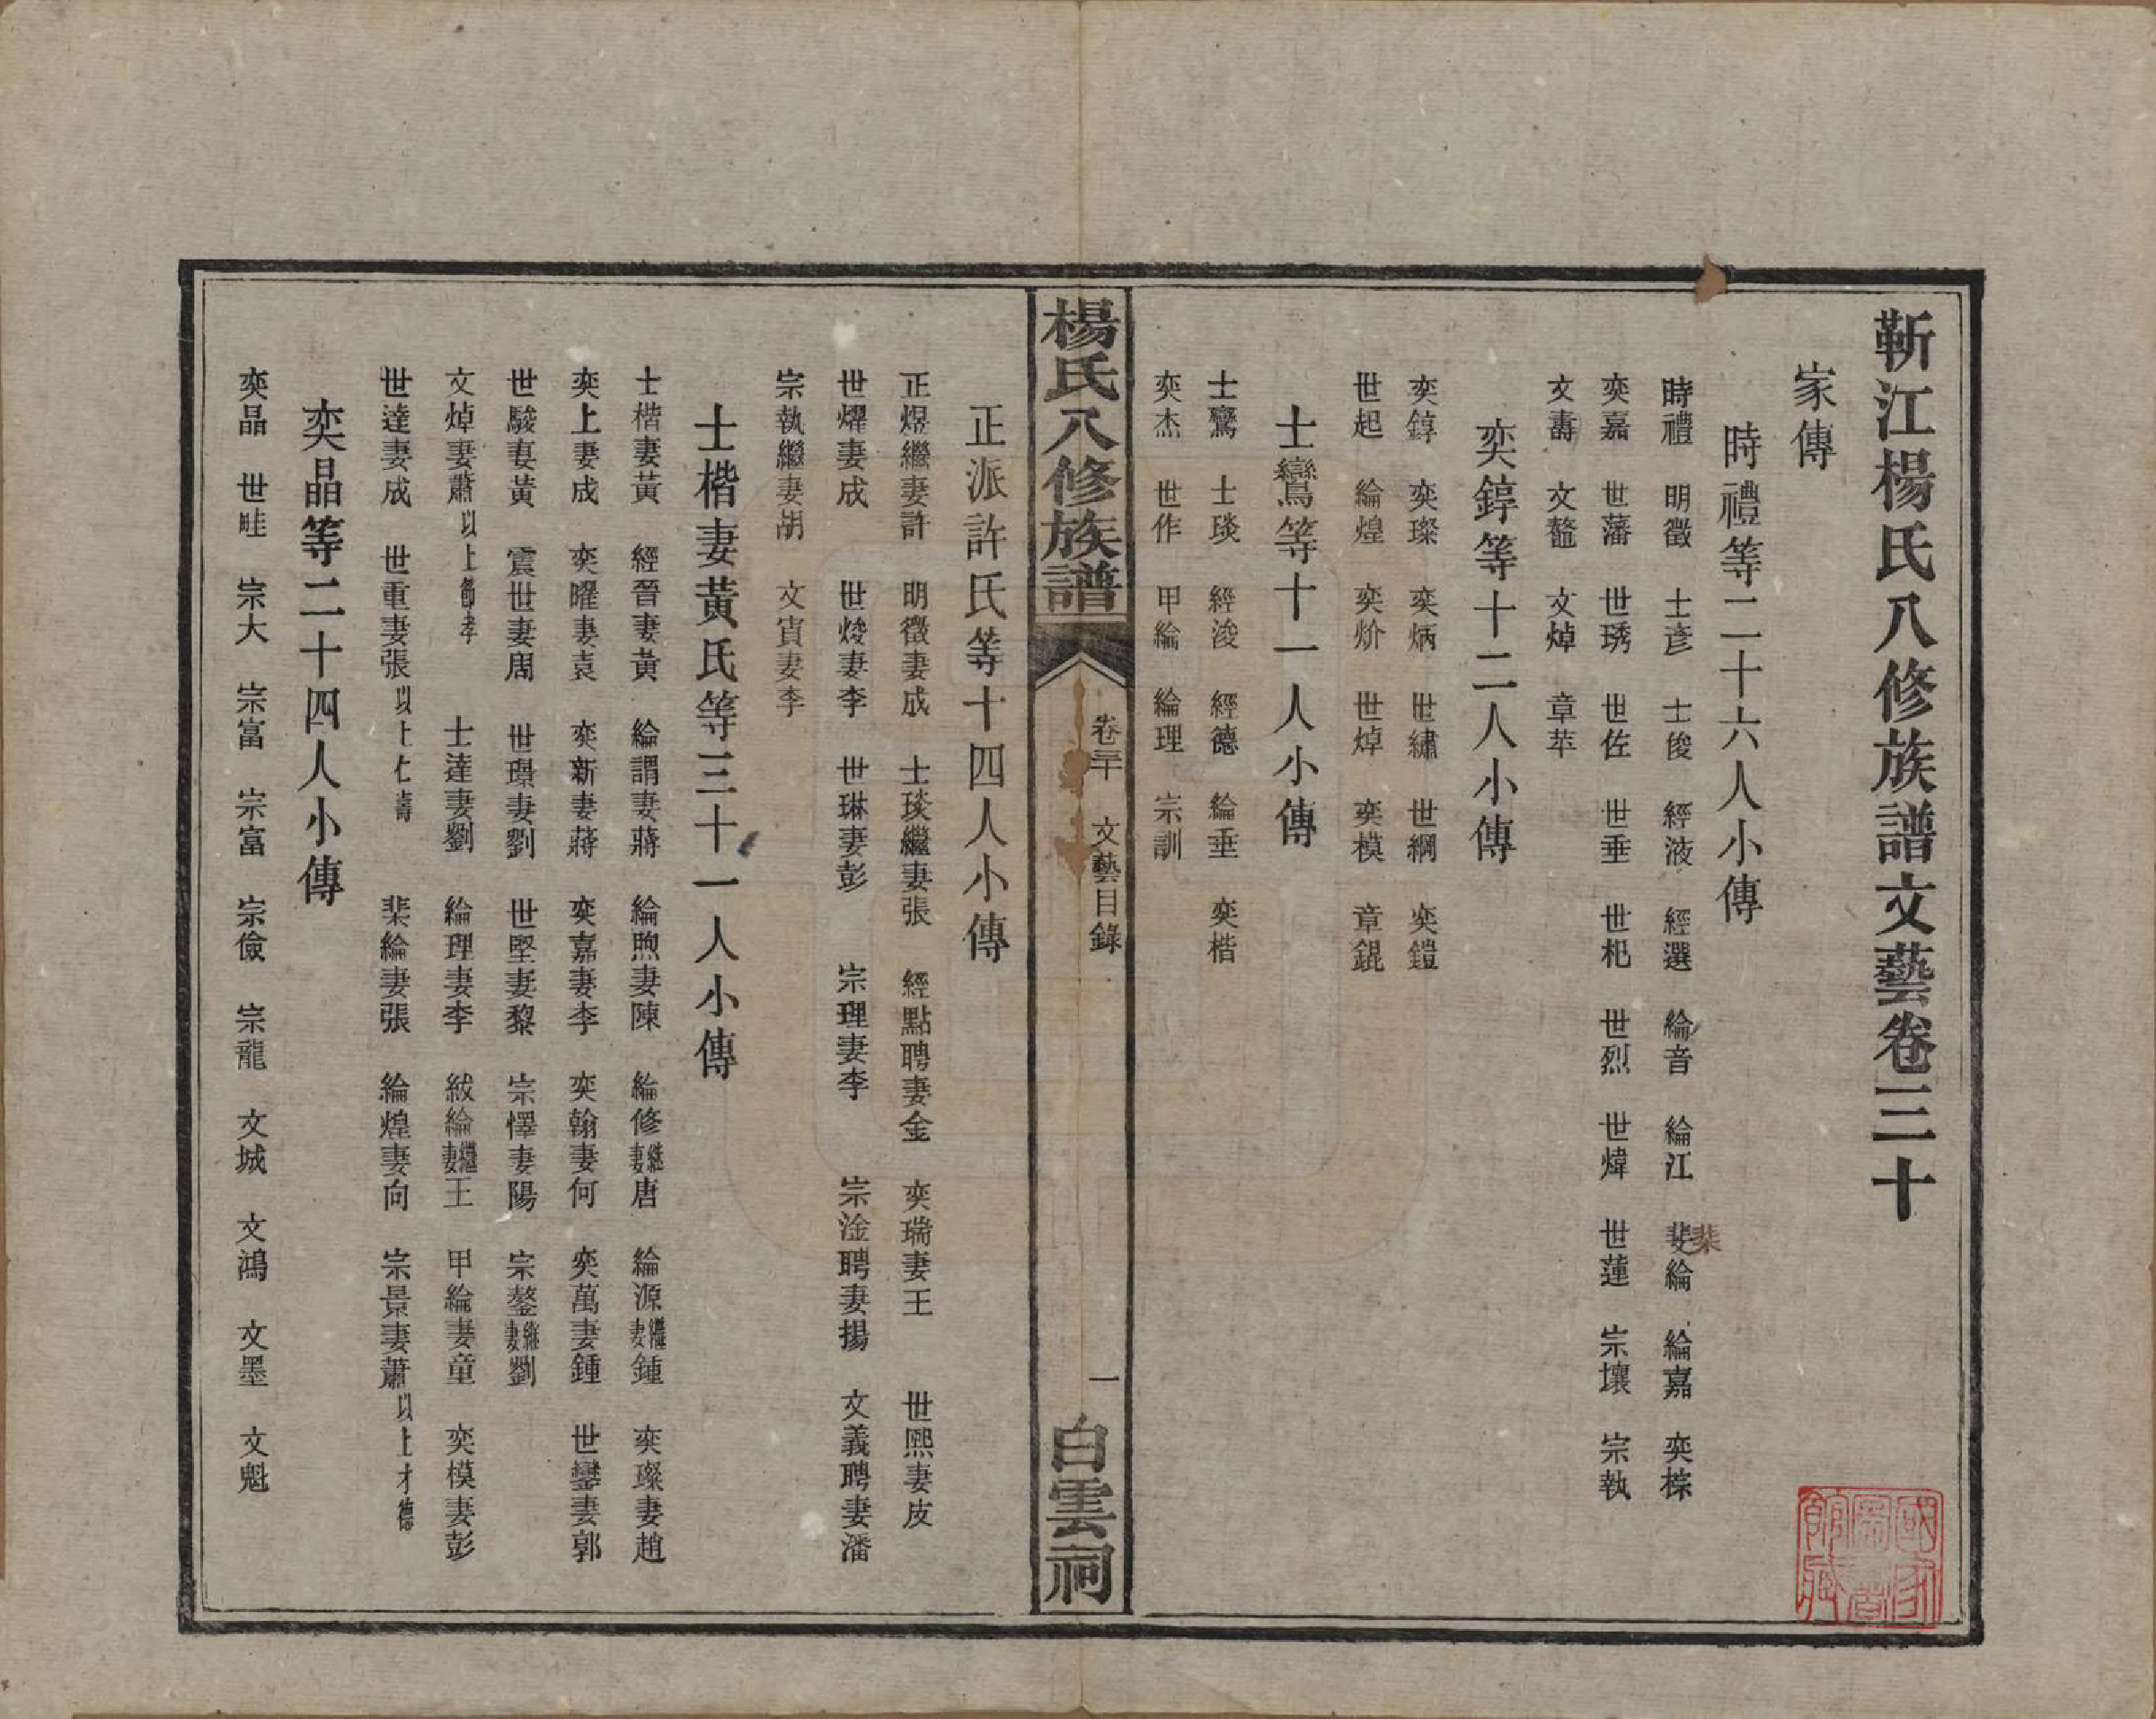 靳江楊氏八修族譜文藝卷三十
家傳
時禮等二十六人小傳
時禮 明徵 士彥 士俊 經液 經選 綸音 綸江 斐綸 綸嘉 奕棕
棐
奕嘉 世藩 世琇 世佐 世垂 世杞 世烈 世煒 世蓮 宗壤 宗執
文壽 文鼇 文焯 章苹
奕錞等十二人小傳
奕錞 奕璨 奕炳 世繡 世綱 奕鎧
世起 綸煌 奕炌 世焯 奕模 章錕
士鸞等十一人小傳
士鸞 士琰 經浚 經德 綸垂 奕楷
奕杰 世作 甲綸 綸理 宗訓
楊氏八修族譜 卷三十 文藝目錄 一 白雲祠
正派許氏等十四人小傳
正煜繼妻許 明徵妻成 士琰繼妻張 經點聘妻金 奕瑞妻王 世熙妻皮
世燿妻成 世焌妻李 世琳妻彭 宗理妻李 宗淦聘妻揚 文義聘妻潘
宗執繼妻胡 文寅妻李
士楷妻黃氏等三十一人小傳
士楷妻黃 經晉妻黃 綸謂妻蔣 綸煦妻陳 綸修繼妻唐 綸源繼妻鍾 奕璨妻趙
奕上妻成 奕曜妻袁 奕新妻蔣 奕嘉妻李 奕翰妻何 奕萬妻鍾 世鑾妻郭
世駿妻黃 震世妻周 世璟妻劉 世堅妻黎 宗懌妻陽 宗鏊繼妻劉
文焯妻蕭以上節孝 士達妻劉 綸理妻李 紱綸繼妻王 甲綸妻童 奕模妻彭
世達妻成 世重妻張以上仁壽 棐綸妻張 綸煌妻向 宗景妻蕭以上才德
奕晶等二十四人小傳
奕晶 世畦 宗大 宗富 宗富 宗儉 宗龍 文城 文鴻 文墨 文魁
國家圖書館藏